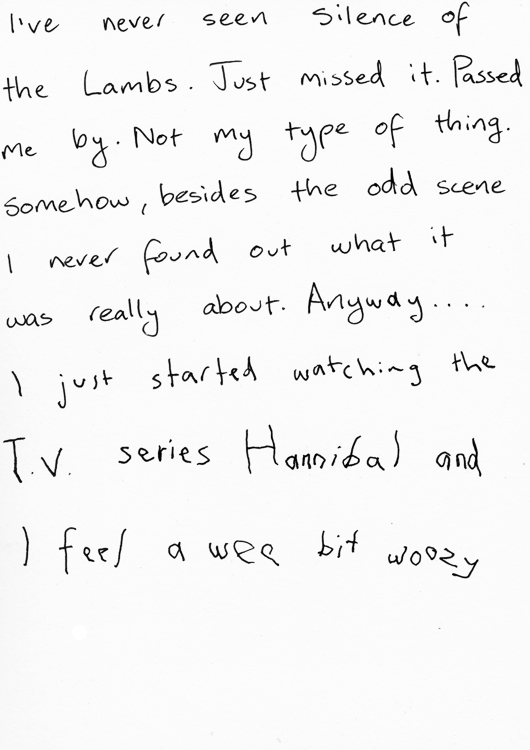 I've never seen Silence of
the Lambs. Just missed it. Passed
me by. Not my type of thing.
Somehow, besides the odd scene
I never found out what it
was really about. Anyway....
I just started watching the
T.V. series Hannibal and
I feel a wee bit woozy